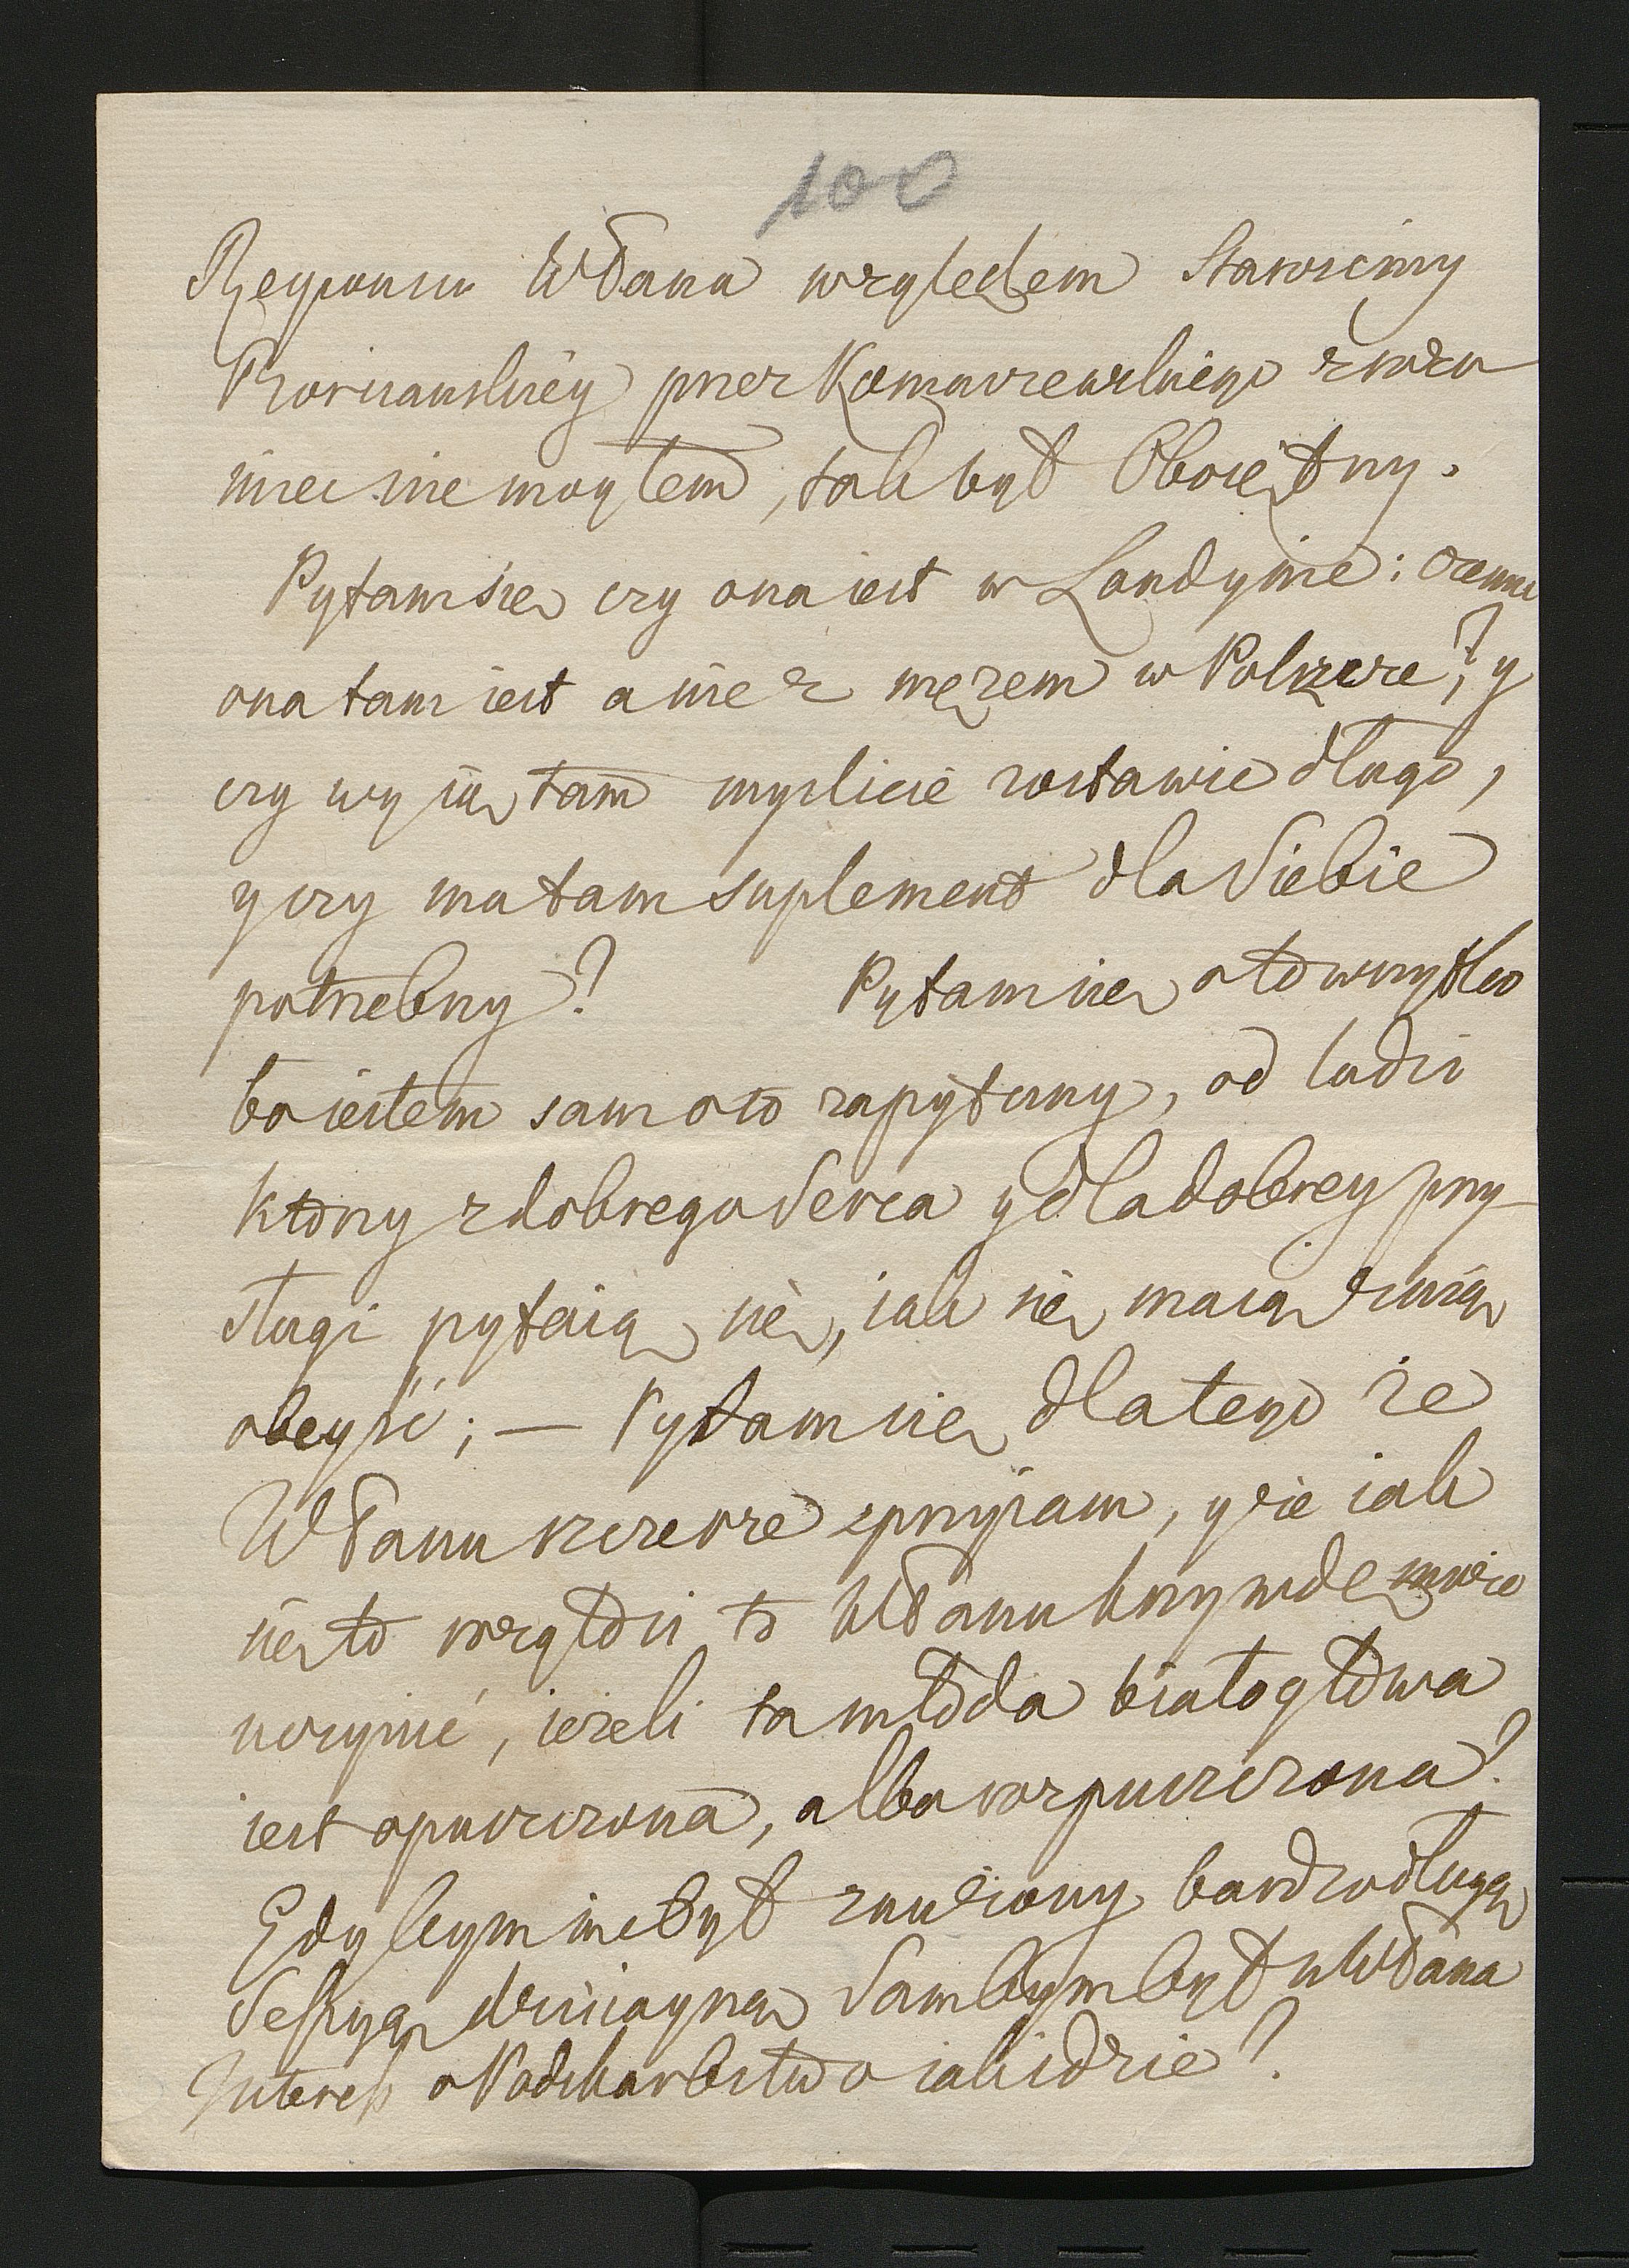 100
Responsu WPana względem Starościny
przez Komarzewskiego
mieć nie mogłem, tak był Oboiętny.
Pytam się czy ona iest w Londynie: czemu
ona tam iest a nie z mężem w Polszcze?, y
czy wy się tam myslicie zostawic długo,
y czy ma tam suplement dla Siebie
potrzebny? Pytam się o to wszystko
bo iestem sam o to zapytany, od ludzi
Ktorzy z dobrego Serca y dla dobrey przy-
sługi pytaią się, iak się maią z nią
obeyść; — Pytam się dlatego że
WPanu szczerze sprzyiam, y że iak
się to rozgłosi to WPanu krzywdę może
uczynić, ieżeli ta młoda białogłowa
iest opuszczona, albo rozpuszczona?
Gdybym nie był znużony bardzo długą
Sessyą dzisieyszą Sam bym był u WPana
Interess o Podskarbstwo iak idzie?